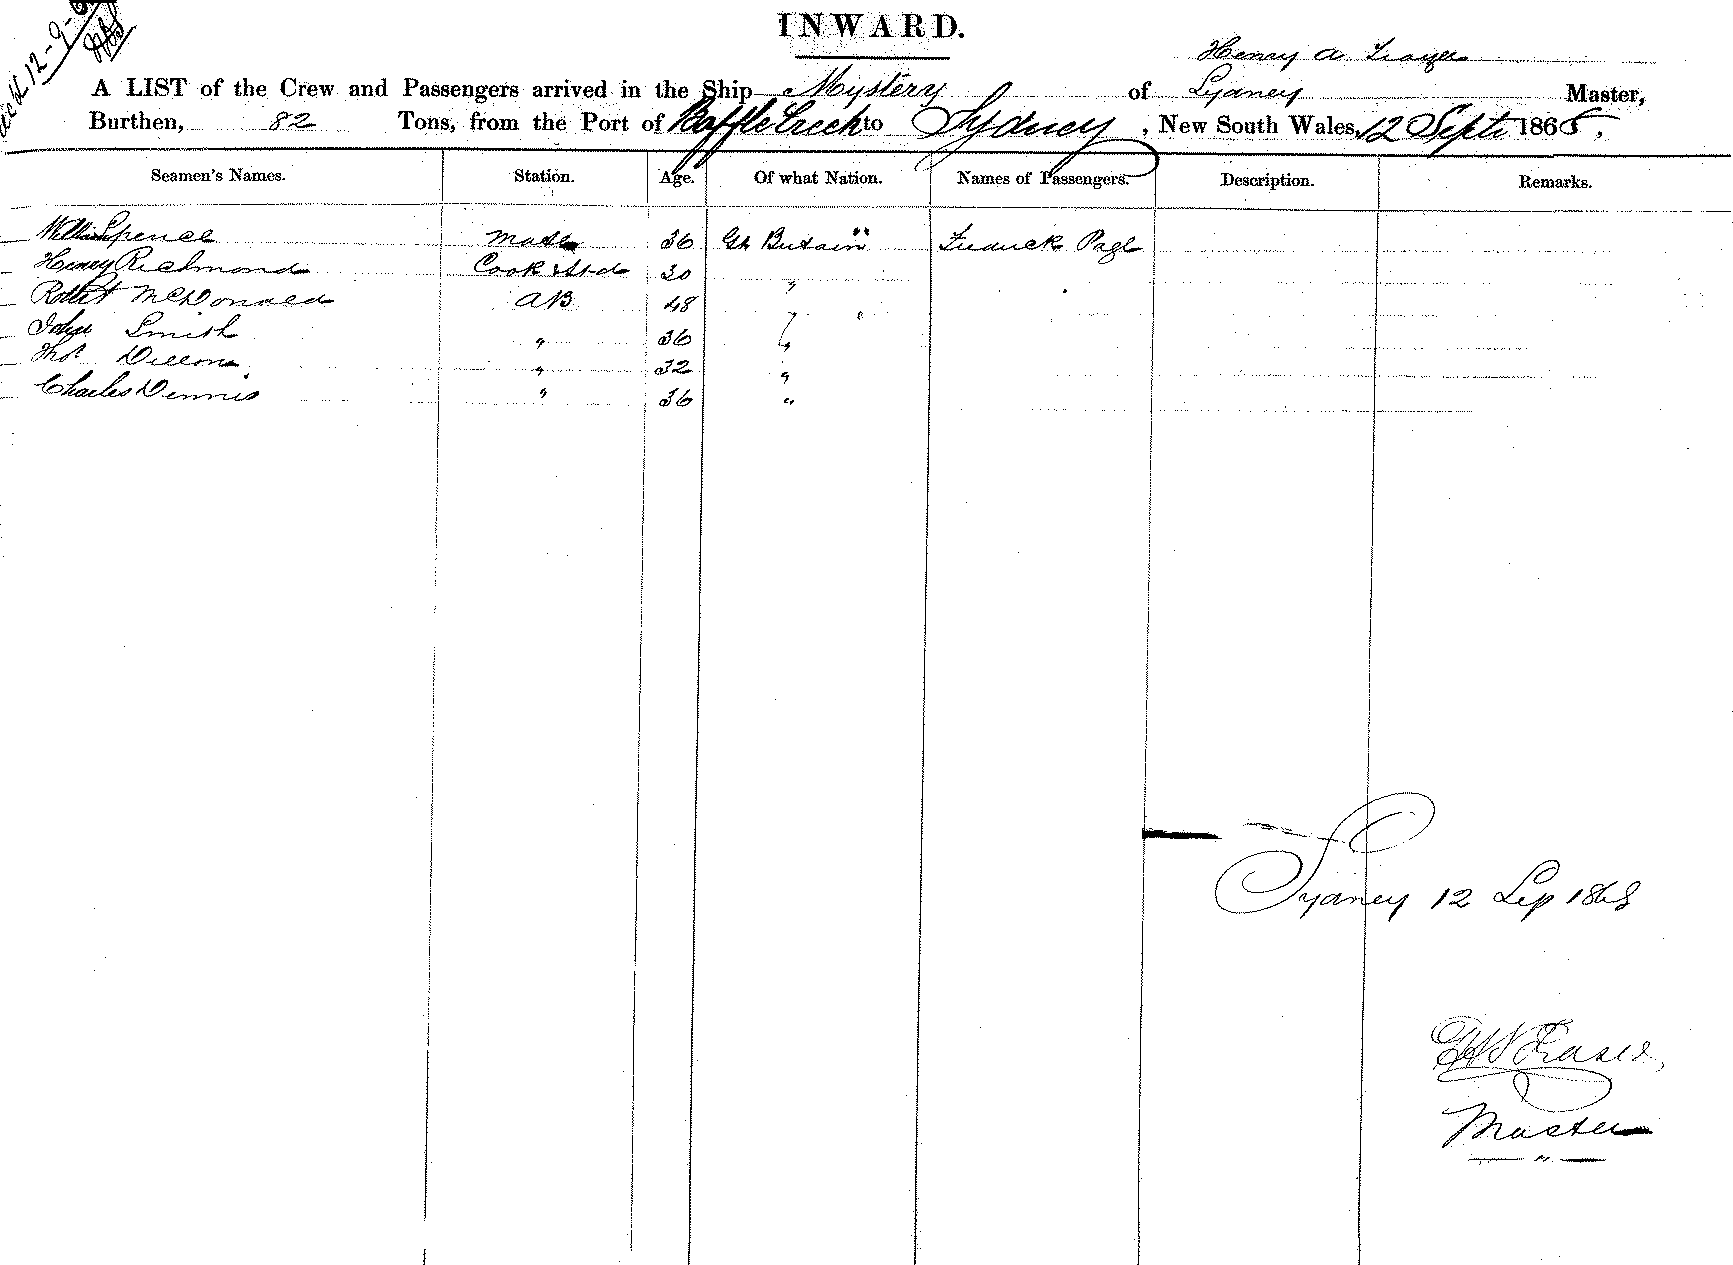 12-9-6
INWARD.
Henry A
A LIST of the Crew and Passengers arrived in the Ship Mystery of Sydney Master,
Burthen, 82 Tons, from the Port of Baffle Creek to Sydney, New South Wales, 12 Sept 1868,
Seamen's Names. Station. Age. Of what Nation. Names of Passengers. Description. Remarks.
William Spence Mate 36 Gt Britain Fredrick Page
Henry Richmond Cook & Std 30 "
Robert McDonald AB 48 " "
John Smith " 36 "
Thos Dillon " 32 "
Charles Dennis " 36 "
Sydney 12 Sep 1868
Fraser
Master